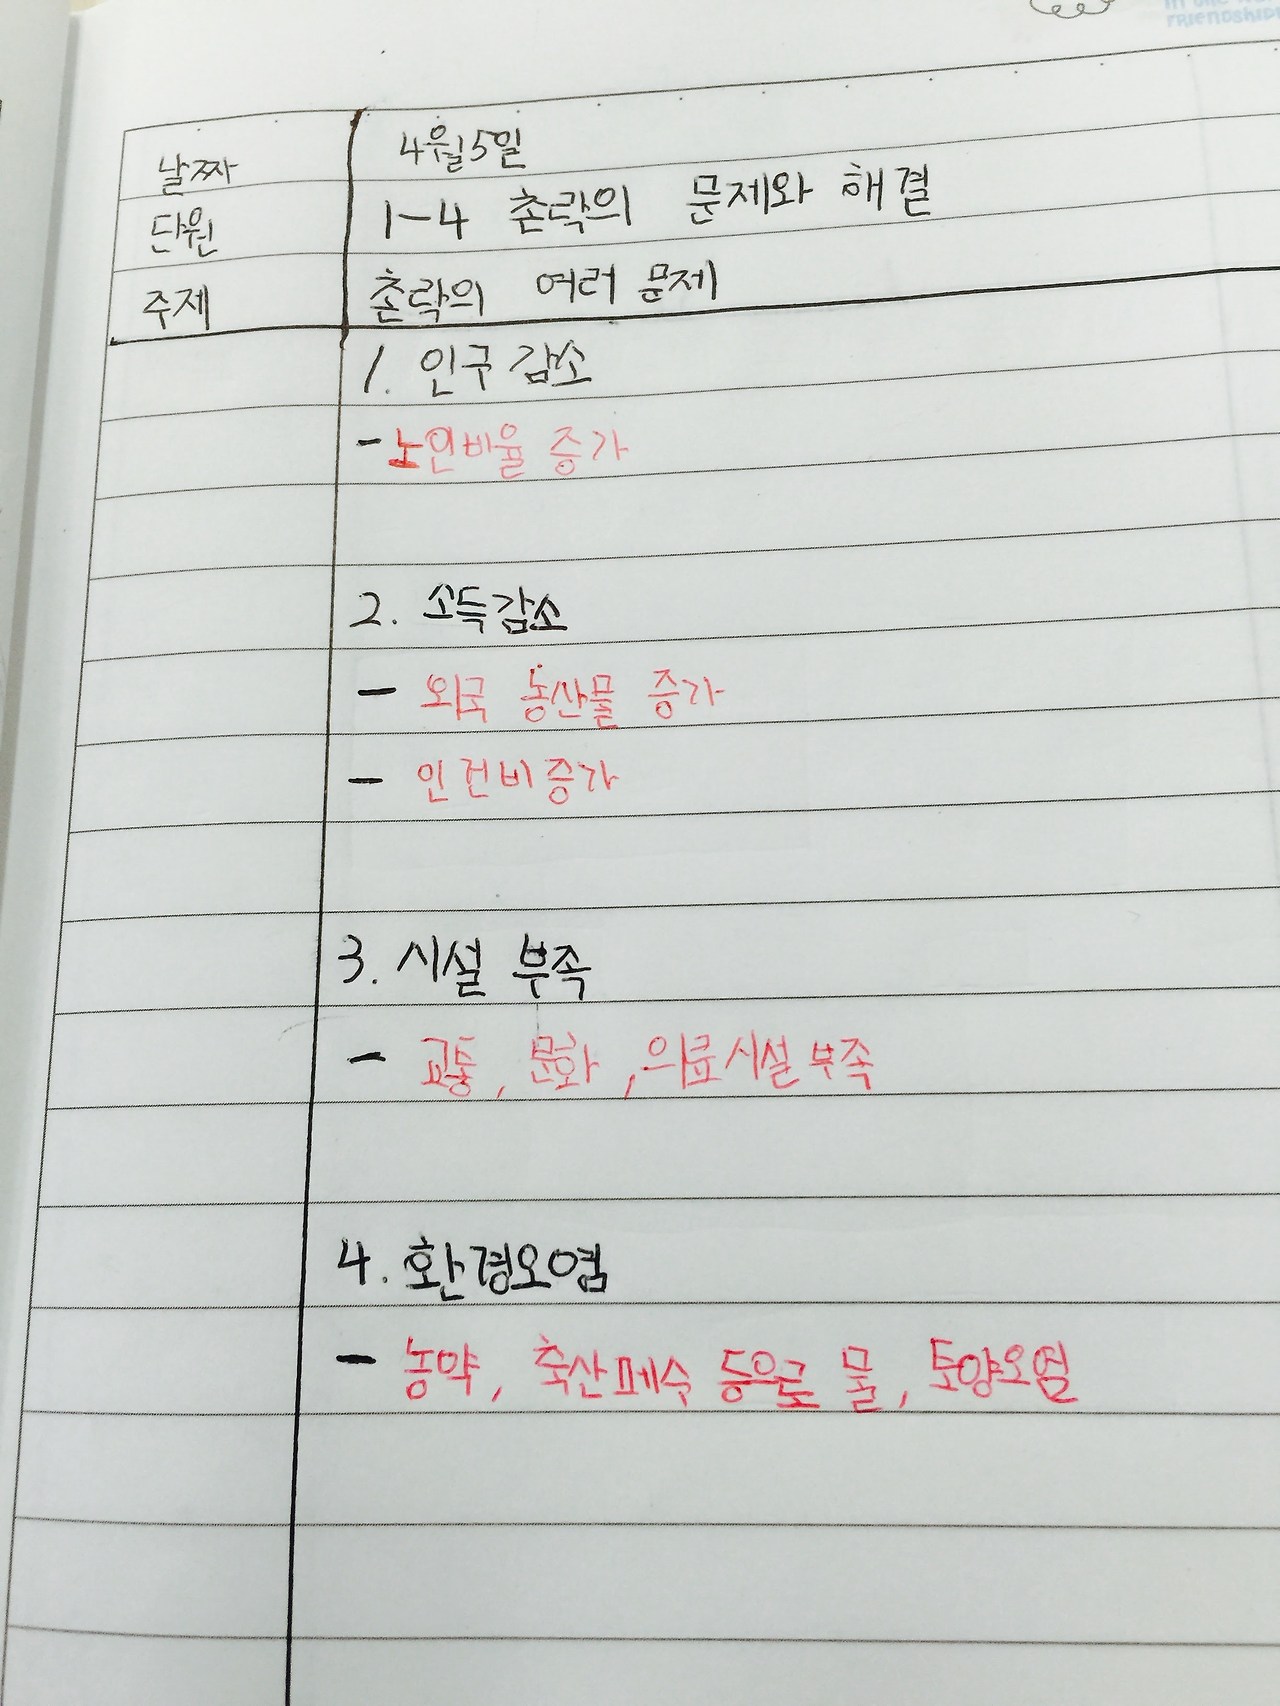 FRIENDSHIP
날짜 4월5일
단원 1-4 촌락의 문제와 해결
주제 촌락의 여러 문제
1. 인구 감소
- 노인비율 증가
2. 소득감소
- 외국 농산물 증가
- 인건비증가
3. 시설 부족
- 교통, 문화, 의료시설 부족
4. 환경오염
- 농약, 축산폐수 등으로 물, 토양오염